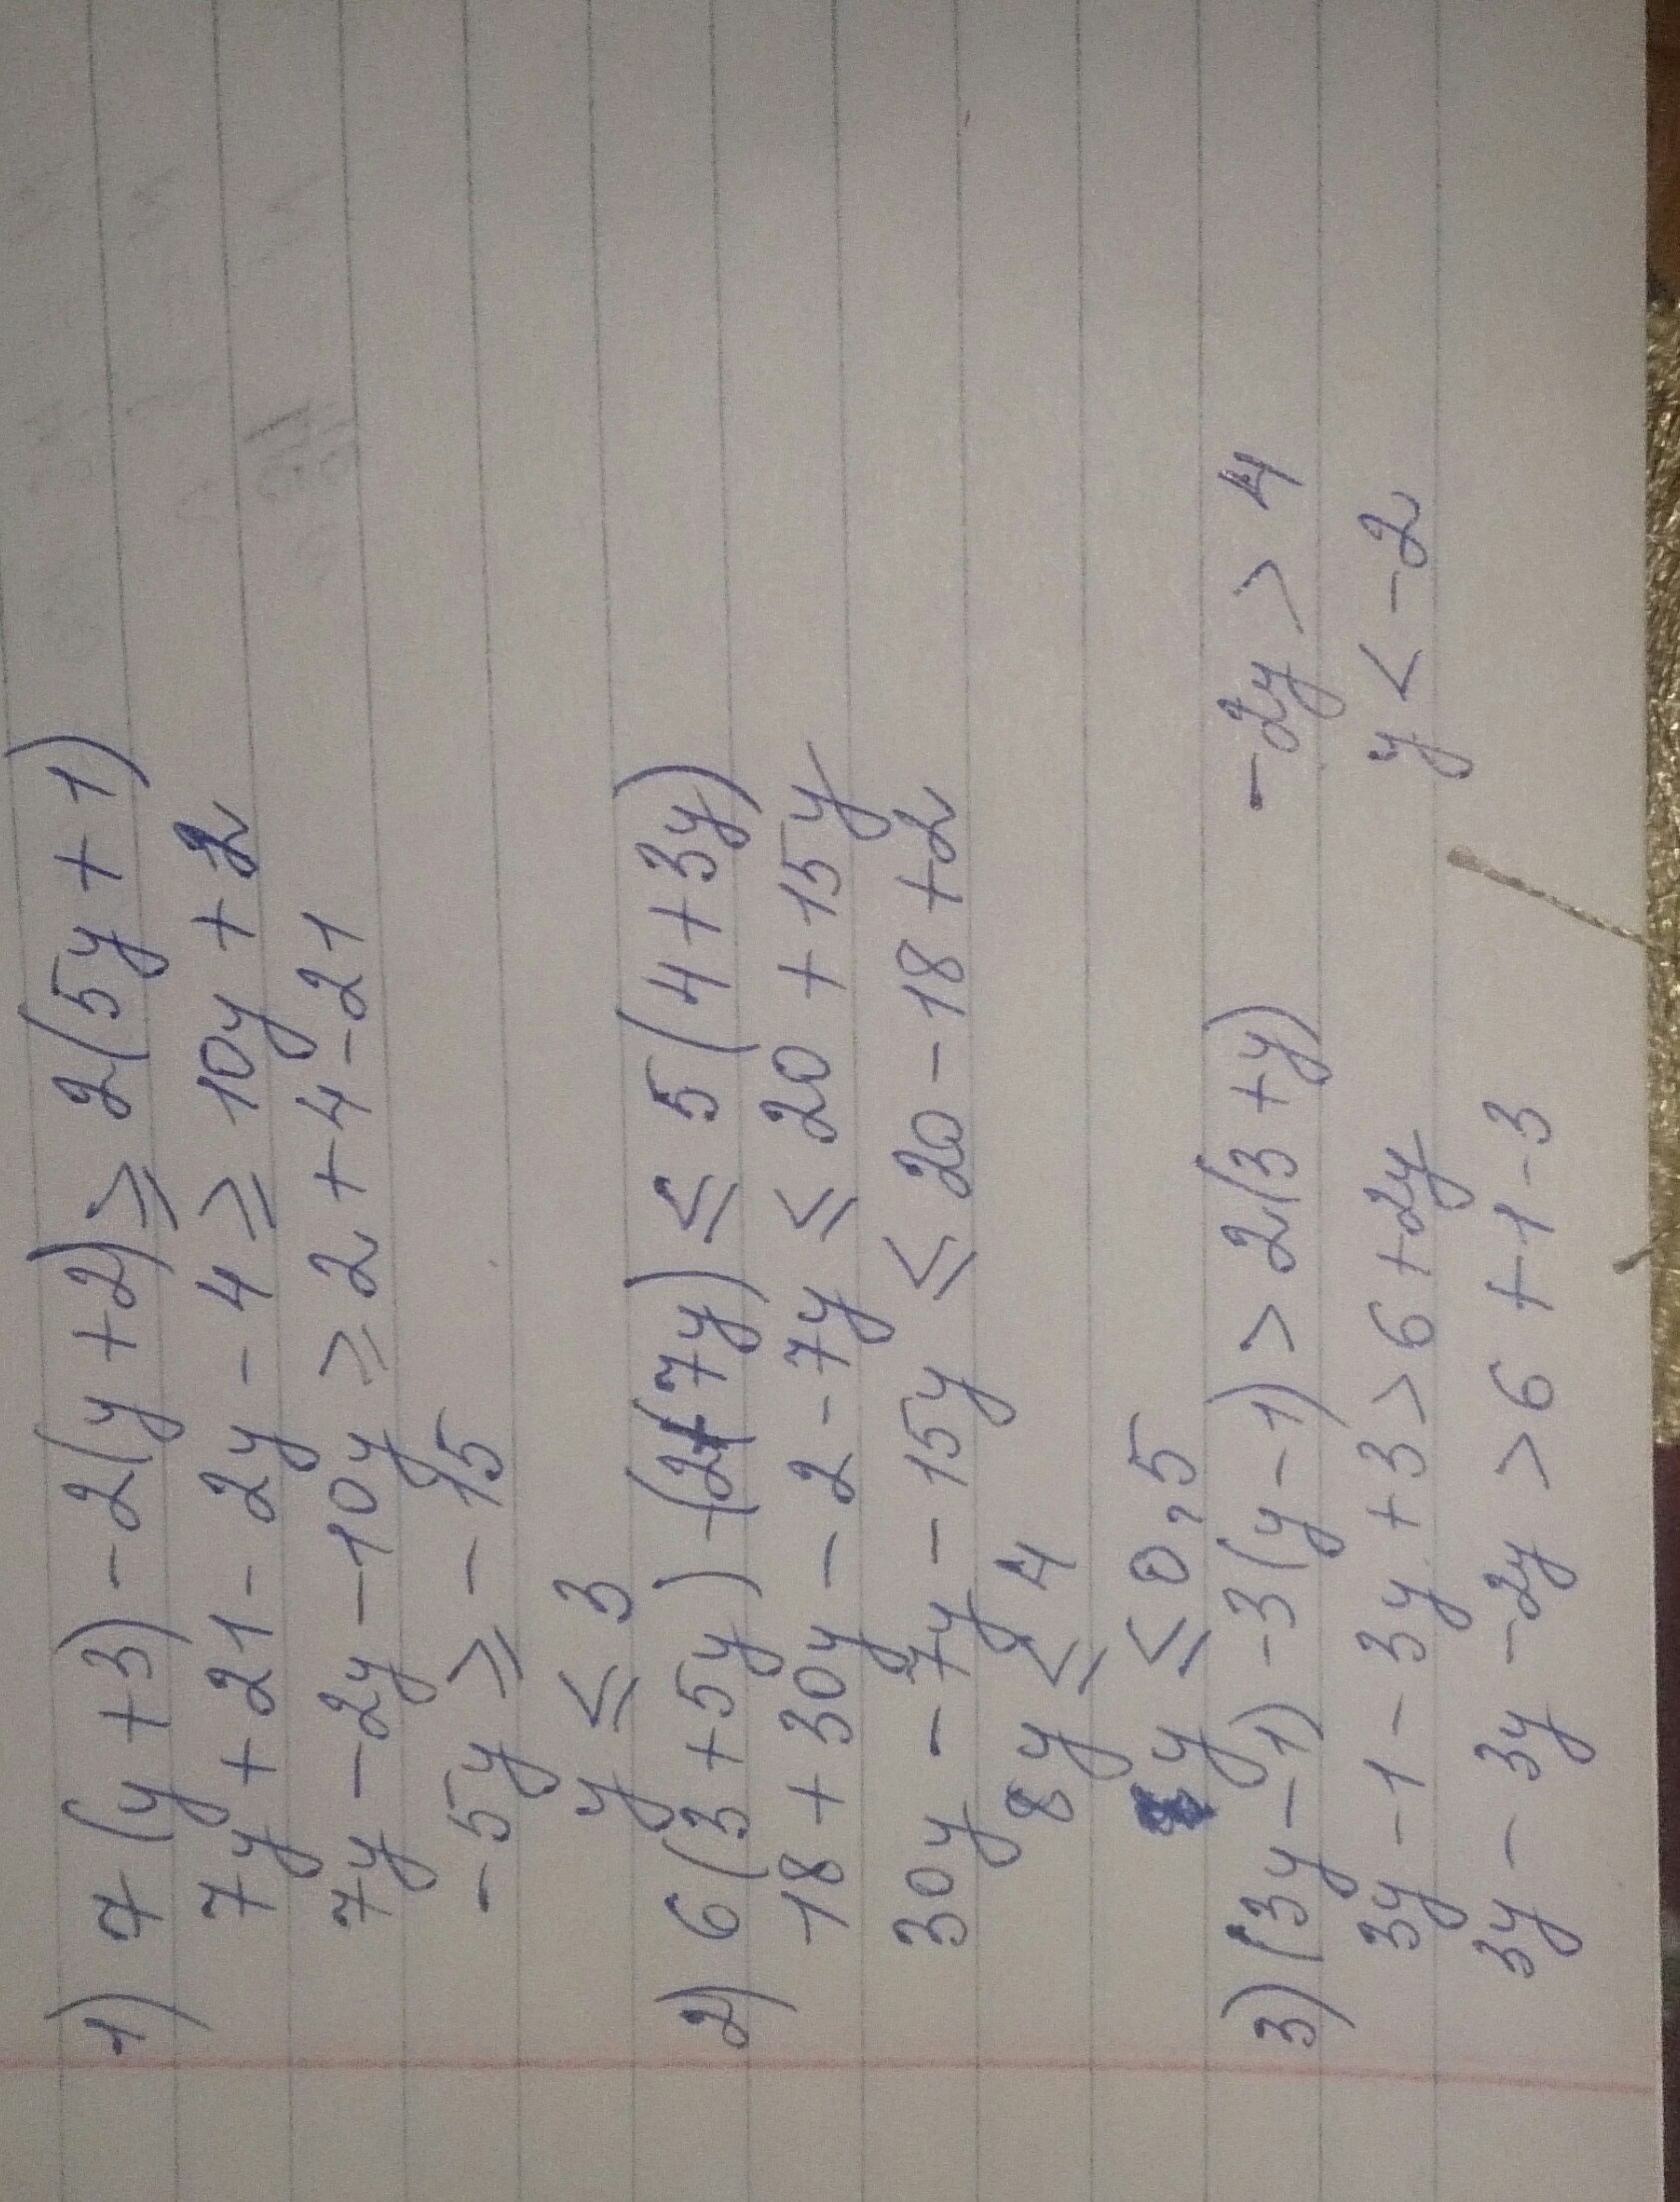 1) 7(y+3)-2(y+2)≥2(5y+1)
7y+21-2y-4≥10y+2
7y-2y-10y≥2+4-21
-5y≥-15
y≤3
2) 6(3+5y)-(2+7y)≤5(4+3y)
18+30y-2-7y≤20+15y
30y-7y-15y≤20-18+2
8y≤4
y≤0,5
3) (3y-1)-3(y-1)>2(3+y)
3y-1-3y+3>6+2y
3y-3y-2y>6+1-3
-2y>4
y<-2